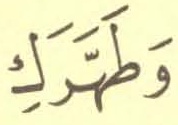 وَطَهَّرَكِ